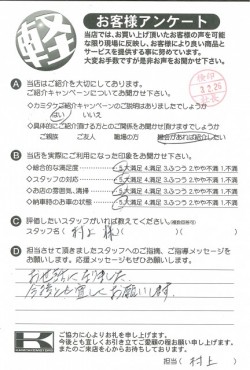 軽
お客様アンケート
当店では、お買い上げ頂いたお客様の声を可能
な限り現場に反映し、お客様により良い商品と
サービスを提供する事に努めています。
大変お手数ですが是非お声をお聞かせ下さい。
A 当店はご紹介を大切にしております。
ご紹介キャンペーンについてお聞かせ下さい。
◇カミタケご紹介キャンペーンのご説明はありましたでしょうか
はい いいえ
◇具体的にご紹介頂ける方との関係をお聞かせ頂けますでしょうか
ご親族 ご友人 職場の方 機会があれば紹介したい
検印
3.2.26
店長
B 当店を実際にご利用になった印象をお聞かせ下さい。
◇総合的な満足度 5.大満足 4.満足 3.ふつう 2.やや不満 1.不満
◇スタッフの対応 5.大満足 4.満足 3.ふつう 2.やや不満 1.不満
◇お店の雰囲気、清掃 5.大満足 4.満足 3.ふつう 2.やや不満 1.不満
◇納車時のお車の状態 5.大満足 4.満足 3.ふつう 2.やや不満 1.不満
C 評価したいスタッフがいれば教えてください。(複数回答可)
スタッフ名( 村上 様 )
D 担当させて頂きましたスタッフへのご指摘、ご指導メッセージを
お願いします。応援メッセージもぜひお願いします。
お世話になりました
今後とも宜しくお願いします。
ご協力に心よりお礼を申し上げます。
今後とも宜しくお引き立てご愛顧の程お願い申し上げます。
またのご来店を心からお待ちしております。
担当( 村上 )